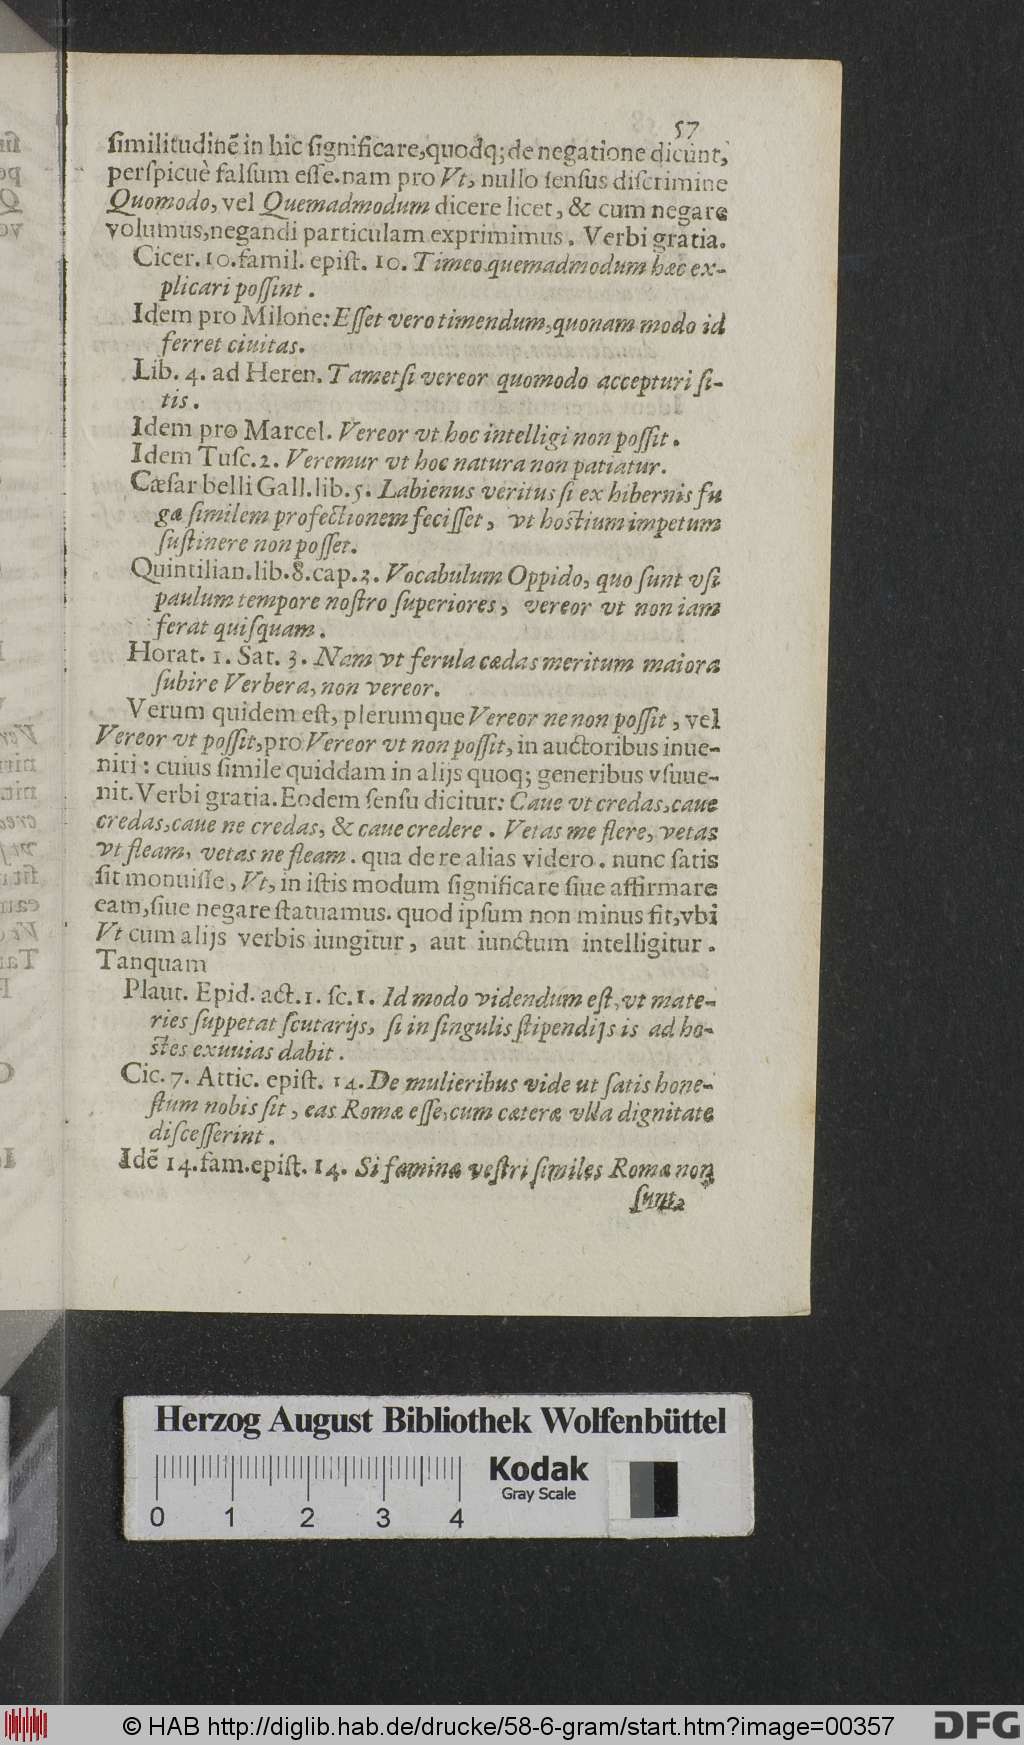 57
similitudinẽ in hic significare,quodq; de negatione dicunt,
perspicuè falsum esse.nam pro Vt, nullo sensus discrimine
Quomodo, vel Quemadmodum dicere licet, & cum negare
volumus,negandi particulam exprimimus. Verbi gratia.
Cicer. 10.famil. epist. 10. Timeo quemadmodum hæc ex-
plicari possint.
Idem pro Milone: Esset vero timendum,quonam modo id
ferret ciuitas.
Lib. 4. ad Heren. Tametsi vereor quomodo accepturi si-
tis.
Idem pro Marcel. Vereor vt hoc intelligi non possit.
Idem Tusc.2. Veremur vt hoc natura non patiatur.
Cæsar belli Gall.lib.5. Labienus veritus si ex hibernis fu
gæ similem profectionem fecisset, vt hostium impetum
sustinere non posset.
Quintilian.lib.8.cap.3. Vocabulum Oppido, quo sunt vsi
paulum tempore nostro superiores, vereor vt non iam
ferat quisquam.
Horat. 1. Sat. 3. Nam vt ferula cædas meritum maiora
subire Verbera, non vereor.
Verum quidem est, plerumque Vereor ne non possit, vel
Vereor vt possit,pro Vereor vt non possit, in auctoribus inue-
niri: cuius simile quiddam in alijs quoq; generibus vsuue-
nit. Verbi gratia. Eodem sensu dicitur: Caue vt credas,caue
credas,caue ne credas, & caue credere. Vetas me flere, vetas
vt fleam, vetas ne fleam. qua de re alias videro. nunc satis
sit monuisse, Vt, in istis modum significare siue affirmare
eam,siue negare statuamus. quod ipsum non minus fit,vbi
Vt cum alijs verbis iungitur, aut iunctum intelligitur.
Tanquam
Plaut. Epid. act.1. sc.1. Id modo videndum est, vt mate-
ries suppetat scutarijs, si in singulis stipendijs is ad ho-
stes exuuias dabit.
Cic. 7. Attic. epist. 14. De mulieribus vide ut satis hone-
stum nobis sit, eas Romæ esse,cum cæteræ vlla dignitate
discesserint.
Idẽ 14.fam.epist. 14. Si fæminæ vestri similes Romæ non
sunt,
Herzog August Bibliothek Wolfenbüttel
Kodak
Gray Scale
0 1 2 3 4
© HAB http://diglib.hab.de/drucke/58-6-gram/start.htm?image=00357
DFG